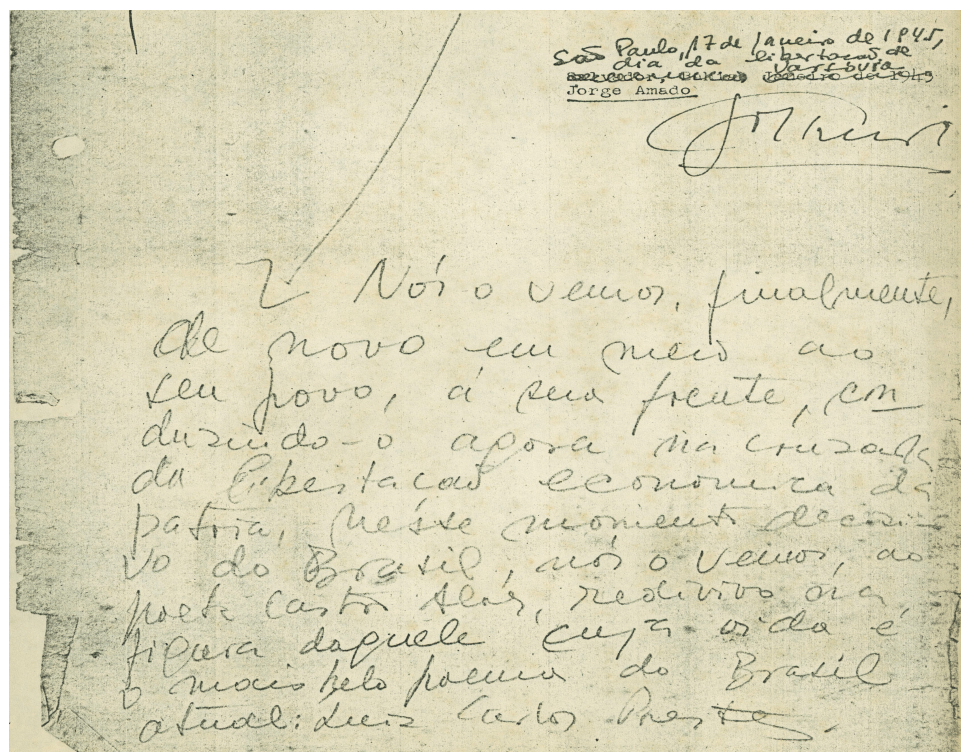 São Paulo, 17 de Janeiro de 1945,
dia da libertação de
Varsovia
Jorge Amado
Nós o vemos, finalmente,
de novo em meio ao
seu povo, á sua frente, con
duzindo-o agora na cruzada
da libertacao economica da
patria. Nesse momento decisi-
vo do Brasil, nós o vemos, ao
poeta Castro Alves, redivivo na
figura daquele cuja vida é
o mais belo poema do Brasil
atual: Luiz Carlos Prestes.